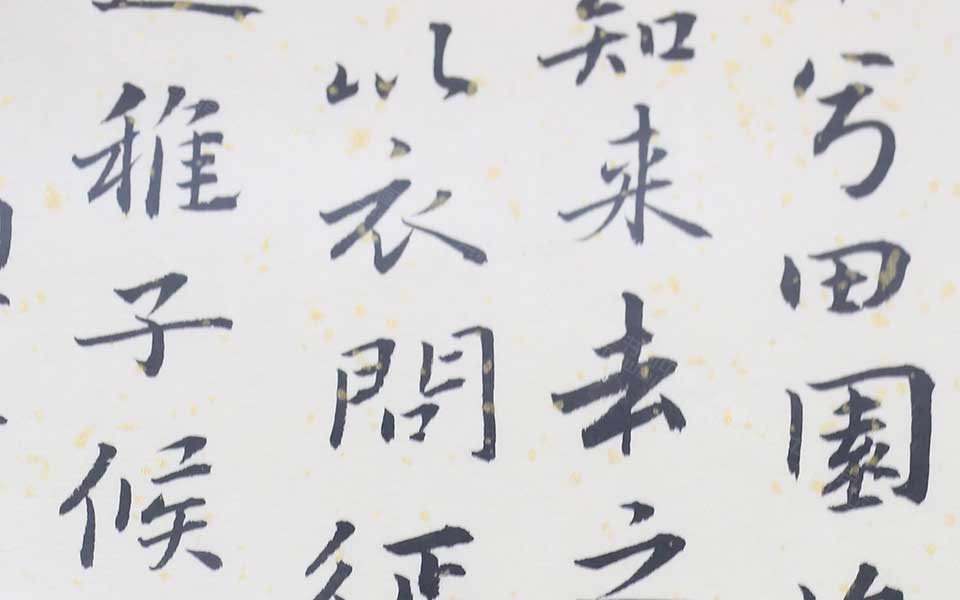 兮田園
知来去之
以衣問征
稚子候